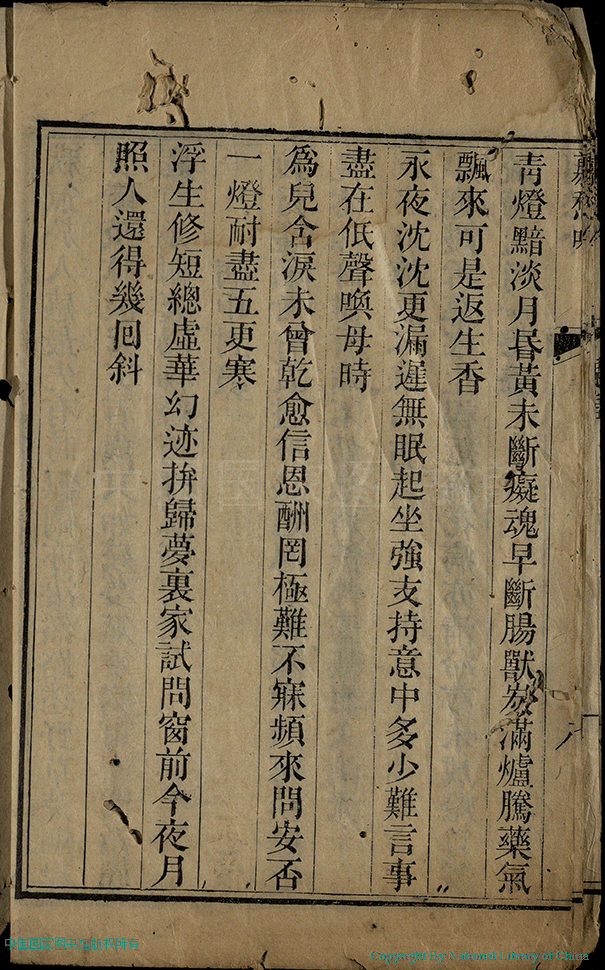 青燈黯淡月昬黃未斷癡魂早斷腸獸炭滿爐騰藥氣
飄來可是返生香
永夜沈沈更漏遲無眠起坐強支持意中多少難言事
盡在低聲喚母時
為兒含淚未曾乾愈信恩酬罔極難不寐頻來問安否
一燈耐盡五更寒
浮生修短總虛華幻迹拚歸夢裏家試問窗前今夜月
照人還得幾回斜
中国国家图书馆版权所有
Copyright By National Library of China